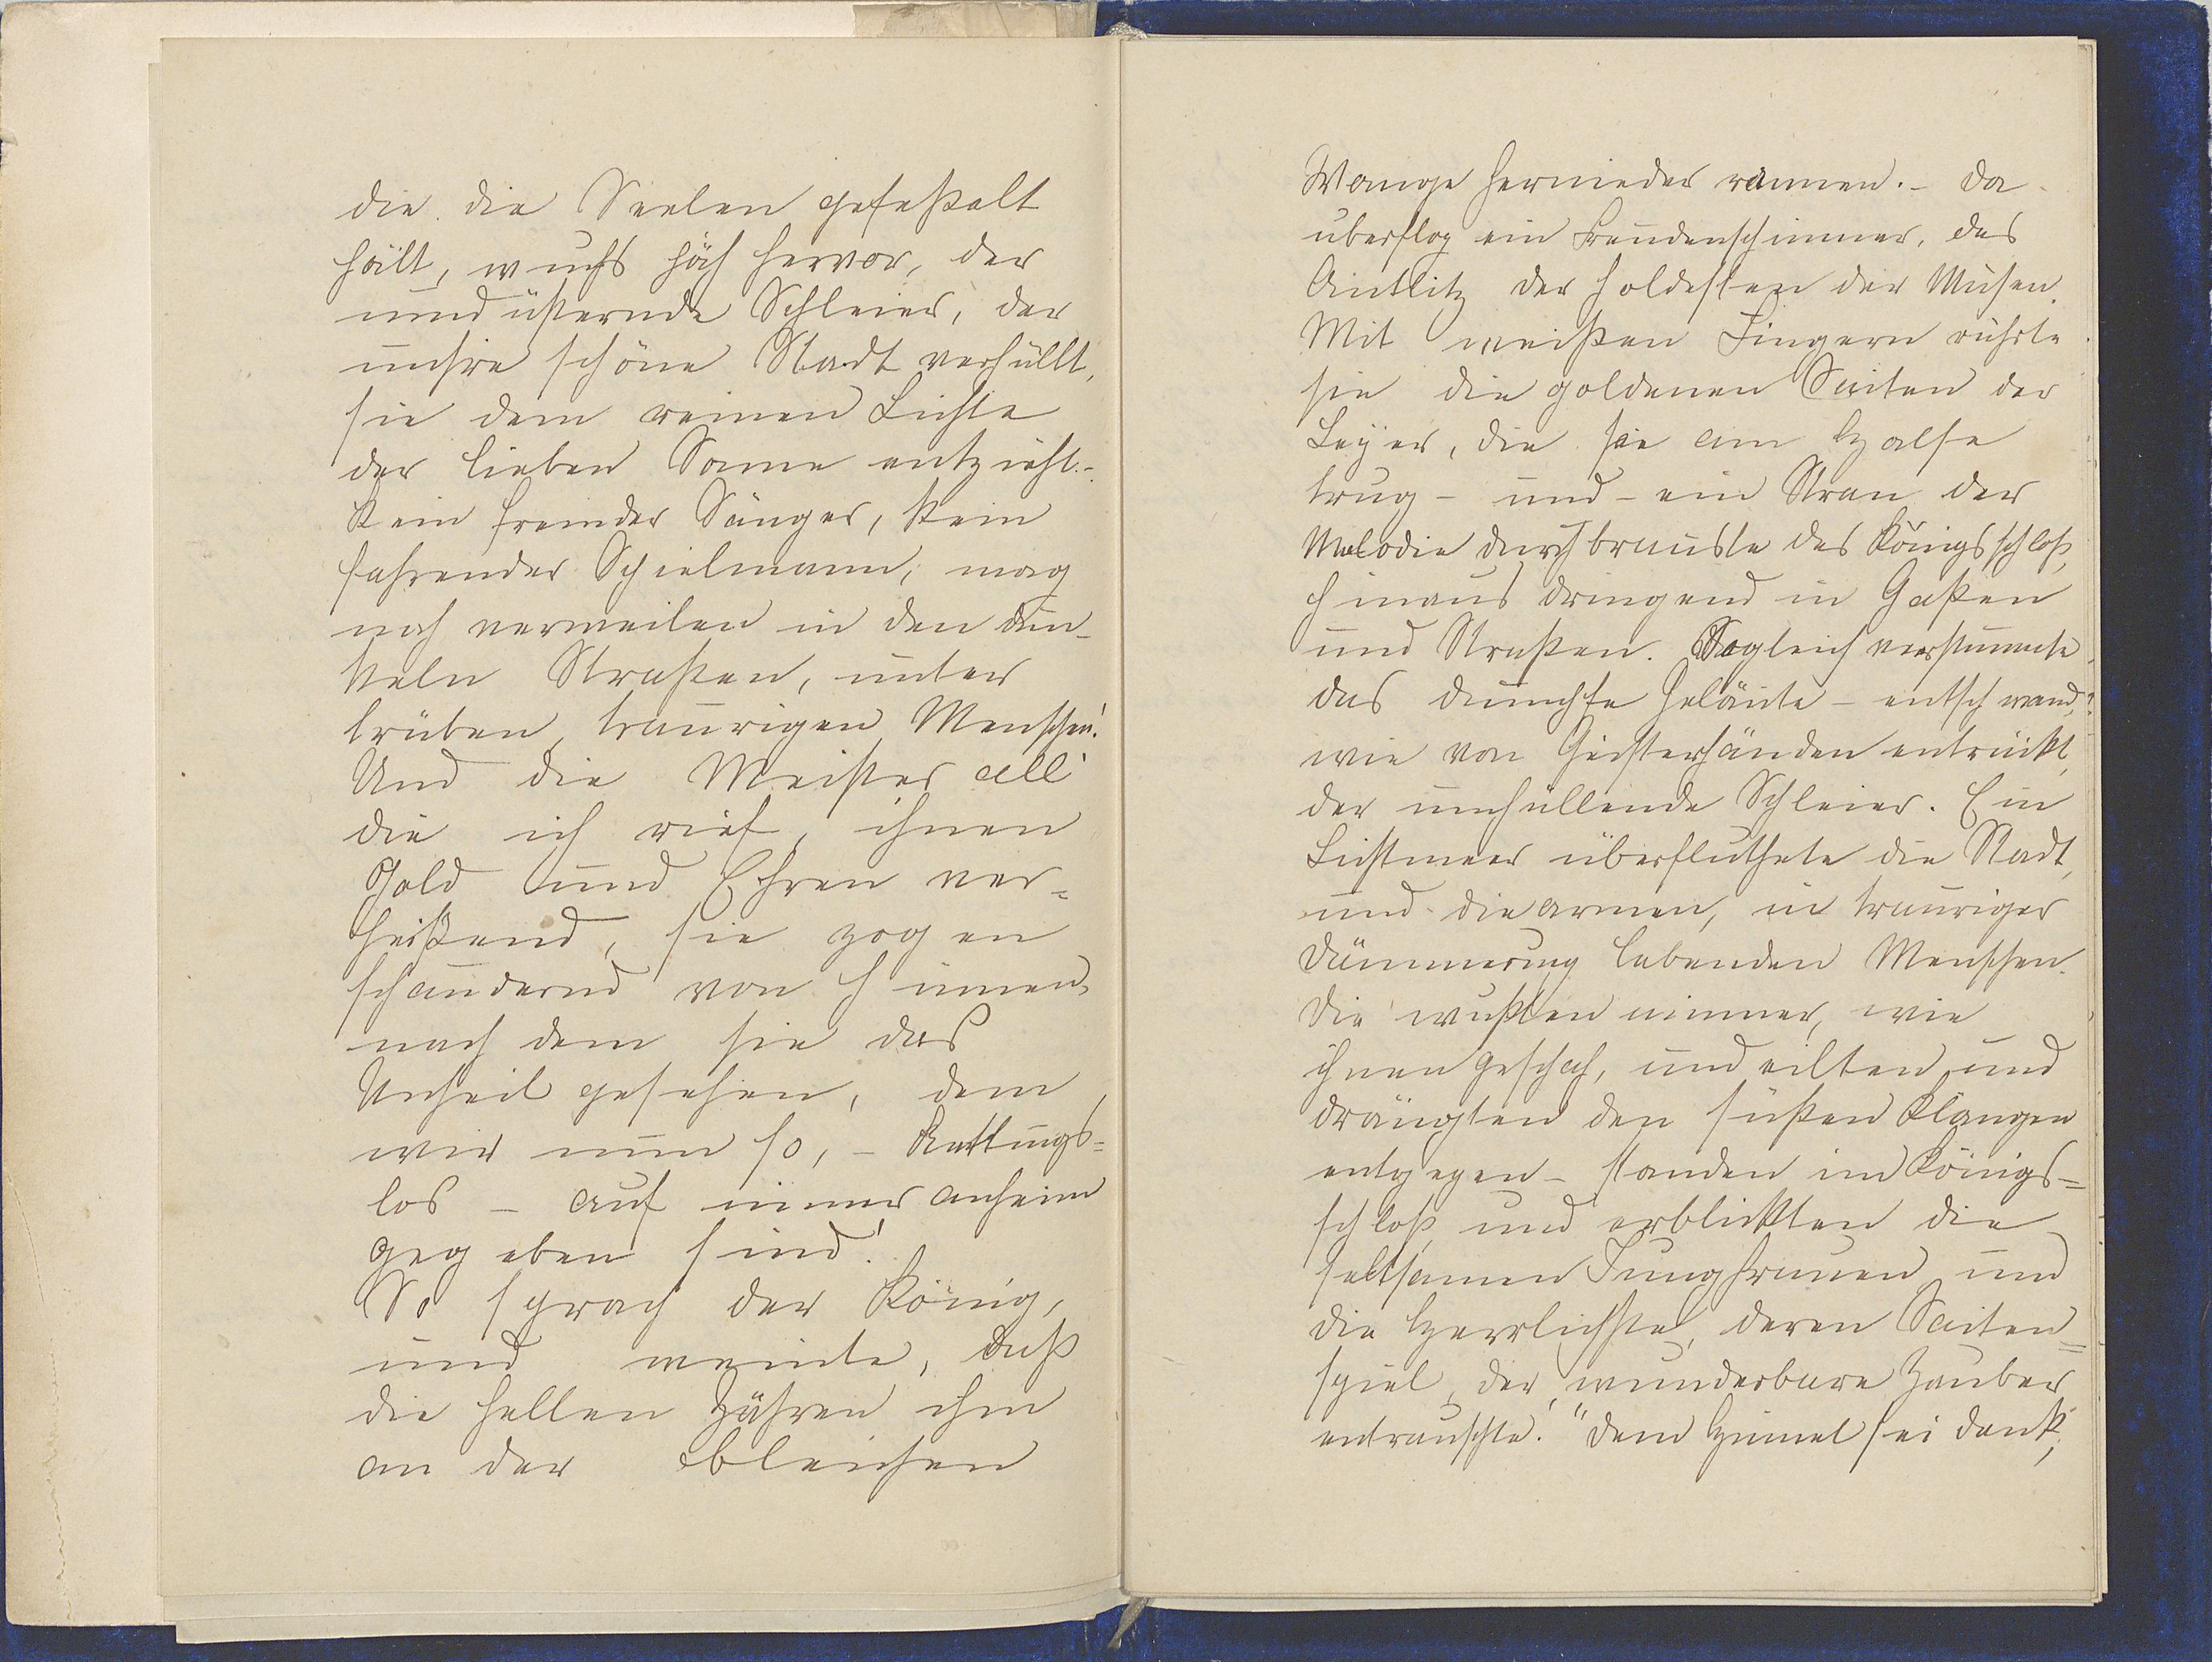 die die Seelen gefeßelt
hält, wuchs jäh hervor, der
umdüsternde Schleier, der
unsre schöne Stadt verhüllt,
sie dem reinen Lichte
der lieben Sonne entzieht.-
Kein fremder Sänger, kein
fahrender Spielmann, mag
noch verweilen in den dun-
keln Straßen, unter
trüben, traurigen Menschen!
Und die Meister all'
die ich rief, ihnen
Gold und Ehren ver=
heißend, sie zogen
schaudernd von hinnen,
nach dem sie das
Unheil gesehen, dem
wir nun so, – Rettungs=
los – auf immer anheim
gegeben sind!
So sprach der König,
und weinte, daß
die hellen Zähren ihm
an der bleichen
Wange hernieder rannen. – Da
überflog ein Freudenschimmer, das
Antlitz der holdesten der Musen.
Mit weißen Fingern rührte
sie die goldenen Saiten der
Leyer, die sie am Halse
trug – und – ein Strom der
Melodie durchbrauste das Königsschloß,
hinaus dringend in Gaßen
und Straßen. Sogleich verstummte
das dumpfe Geläute – entschwand,
wie von Geisterhänden entrückt,
der umhüllende Schleier. Ein
Lichtmeer überfluthete die Stadt,
und die armen, in trauriger
Dämmerung lebenden Menschen.
Die wußten nimmer, wie
ihnen geschah, und eilten und
drängten den süßen Klängen
entgegen – standen im Königs=
schloß und erblickten die
seltsamen Jungfrauen und
die Herrlichste, deren Saiten=
spiel, der wunderbare Zauber
entrauschte. "Dem Himmel sei Dank,